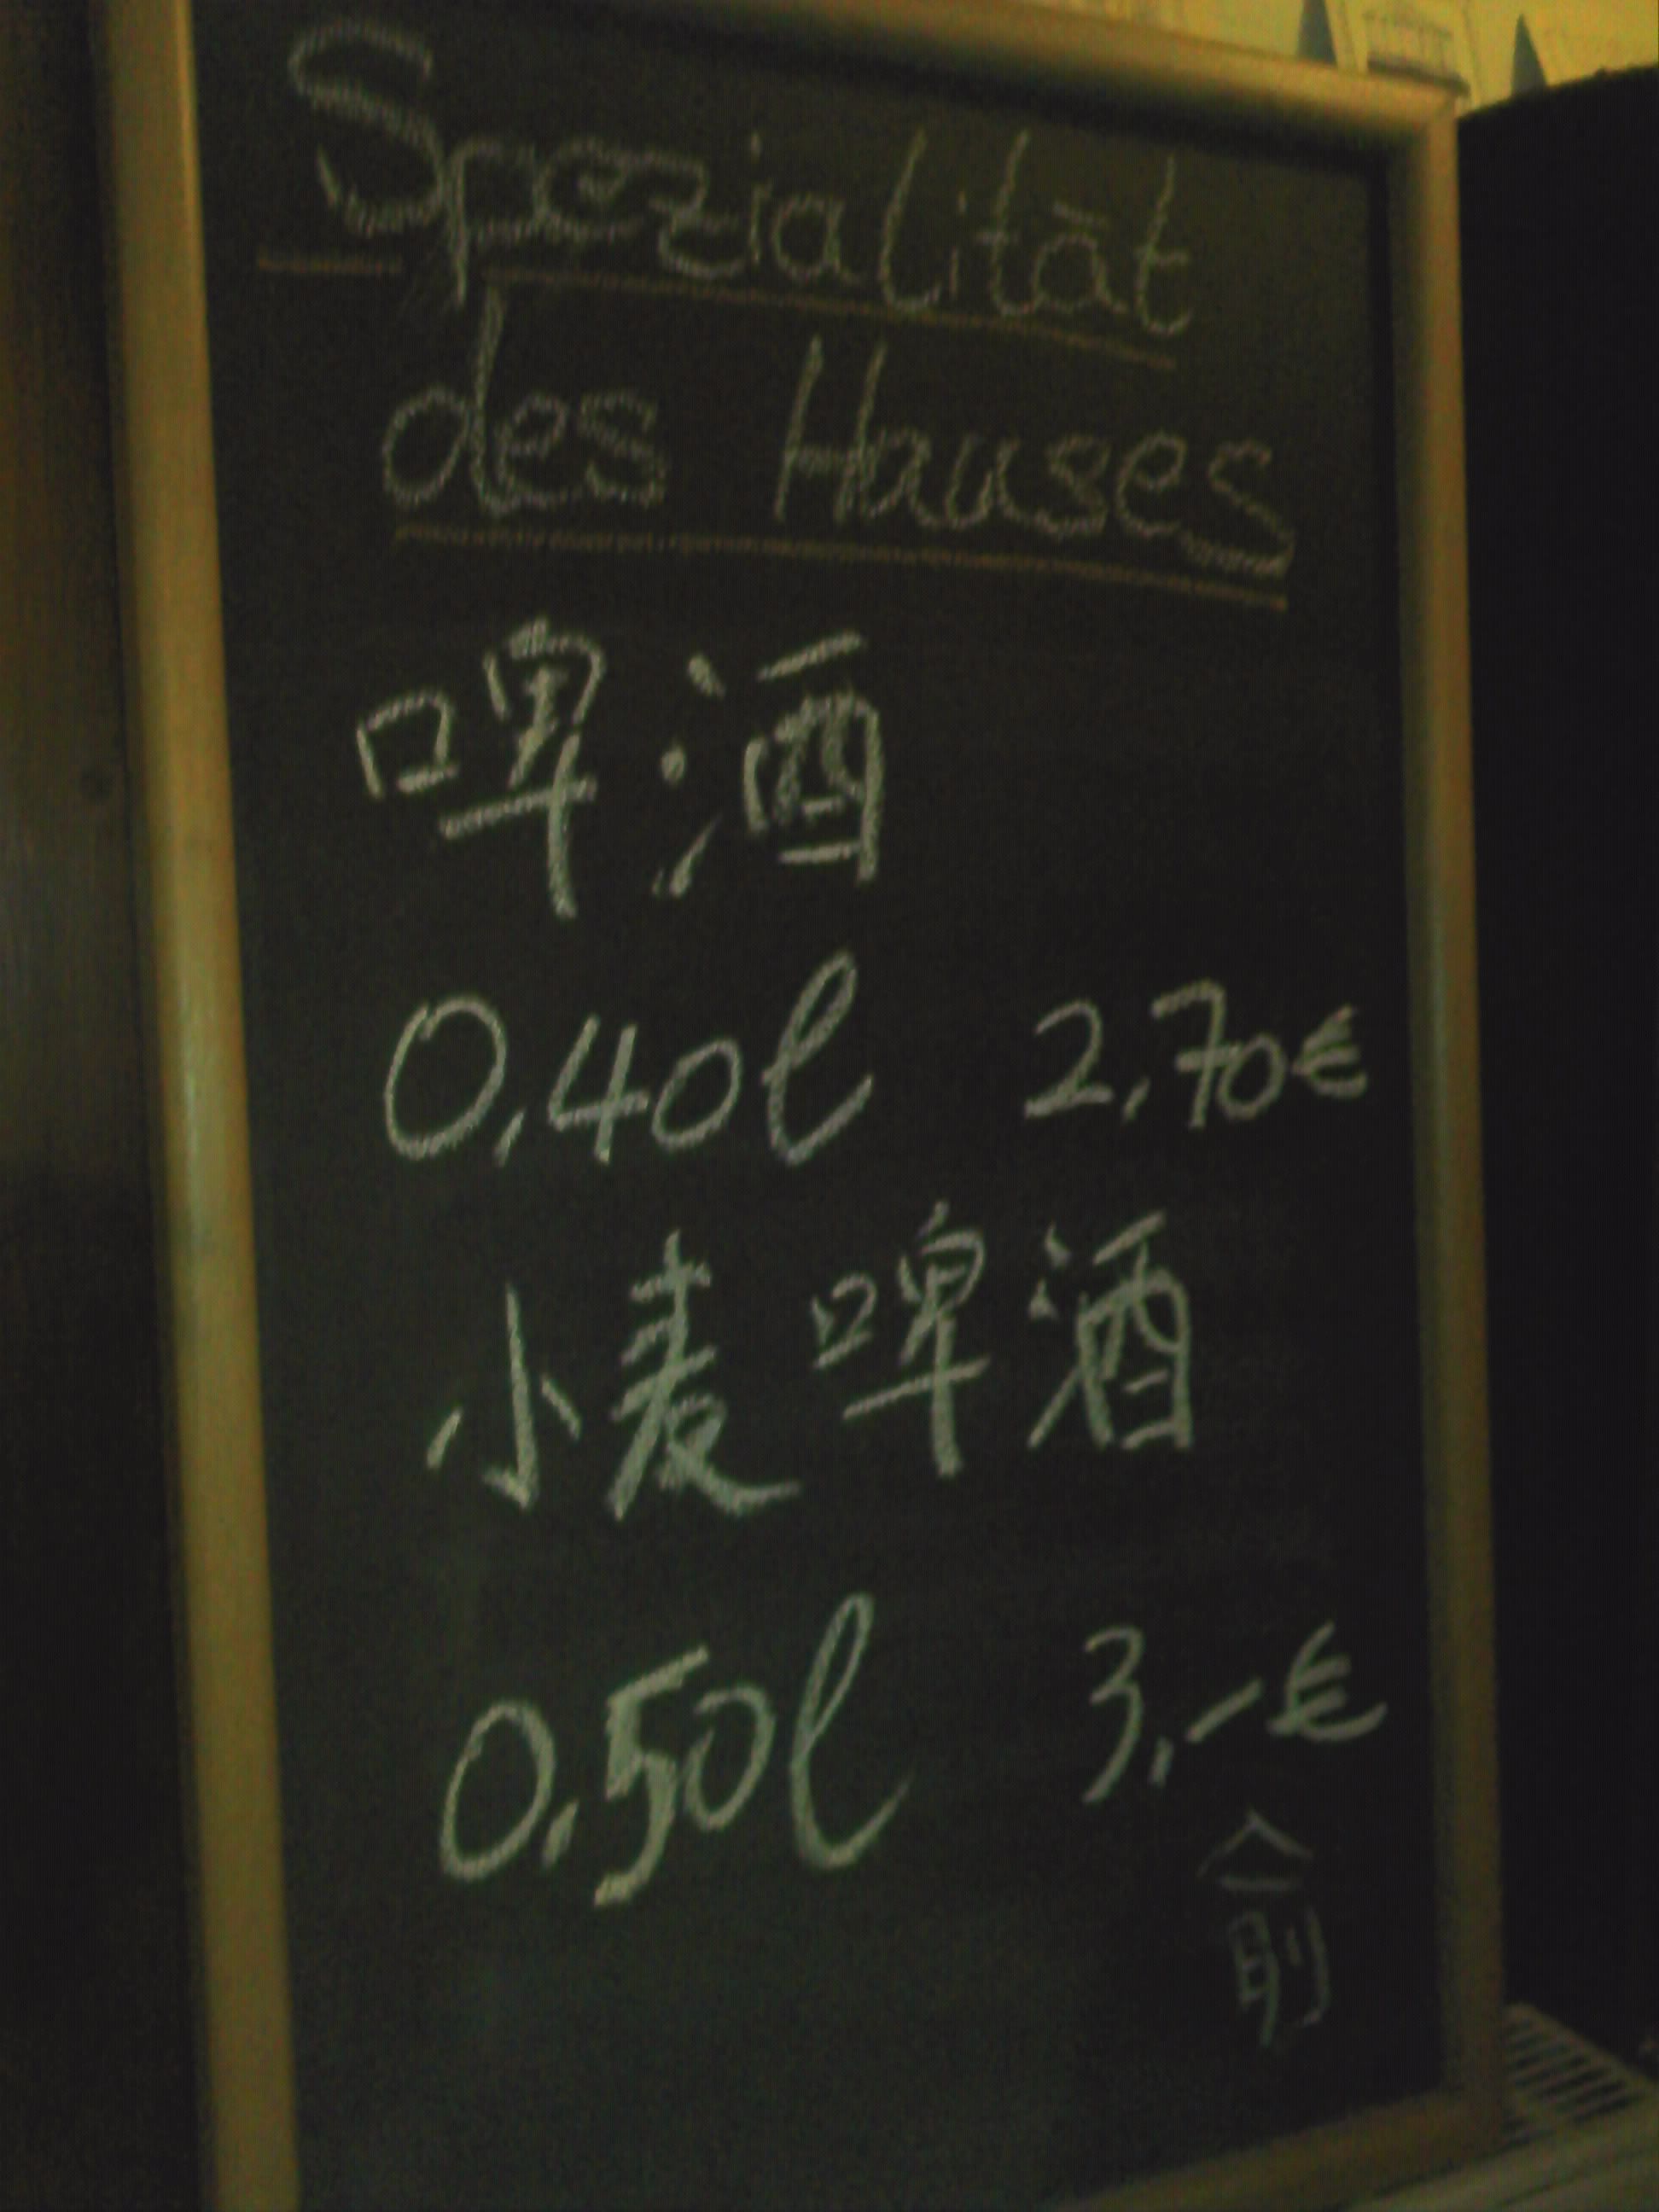 Spezialität
des Hauses
啤酒
0,40l 2,70€
小麦啤酒
0,50l 3,-€
俞